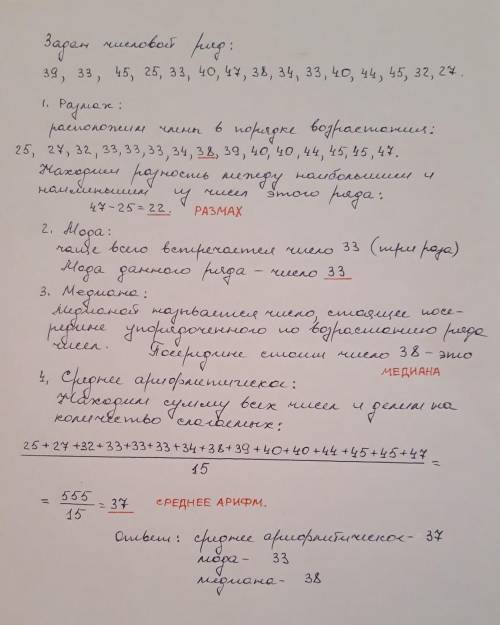 Задан числовой ряд:
39, 33, 45, 25, 33, 40, 47, 38, 34, 33, 40, 44, 45, 32, 27.
1. Размах:
расположим члены в порядке возрастания:
25, 27, 32, 33, 33, 33, 34, 38, 39, 40, 40, 44, 45, 45, 47.
Находим разность между наибольшим и
наименьшим из чисел этого ряда:
47-25=22. РАЗМАХ
2. Мода:
чаще всего встречается число 33 (три раза)
Мода данного ряда - число 33
3. Медиана:
Медианой называется число, стоящее посе-
редине упорядоченного по возрастанию ряда
чисел. Посередине стоит число 38 - это
МЕДИАНА
4, Среднее арифметическое:
Находим сумму всех чисел и делим на
количество слагаемых:
25+27+32+33+33+33+34+38+39+40+40+44+45+45+47
15 =
= 555/15 = 37 СРЕДНЕЕ АРИФМ.
Ответ: среднее арифметическое - 37
мода - 33
медиана - 38